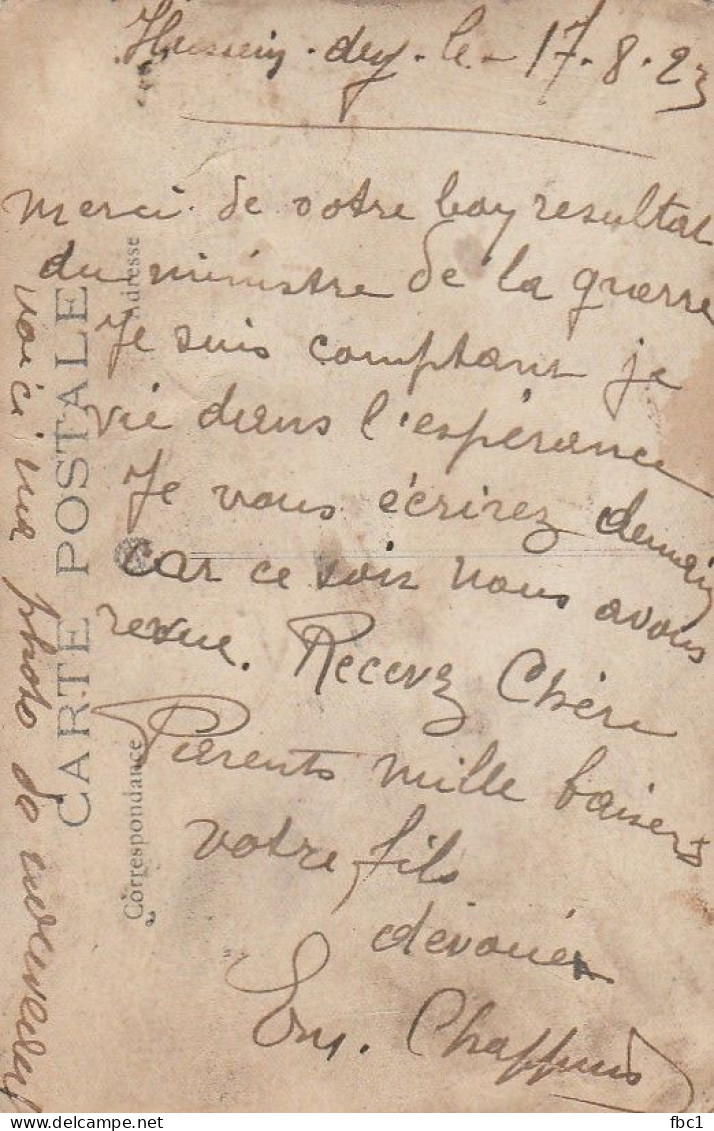 Hussein-dey-le-17.8.23
merci de votre boy resultat
du ministre de la guerre
Je suis comptant je
vie dans l'espérance
Je vous écrirez demain
car ce soir nous avons
revue. Recevez Chère
Parents mille baisers
votre fils
dévouér
Em. Chaffuis
voici ma photo de
CARTE POSTALE
Correspondance
Adresse
Delcampe.net
fbc1